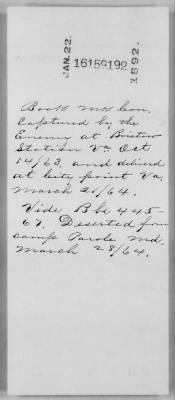 JAN. 22. 1615C192 1892.
Book mk Con.
Captured by the
Enemy at Bristow
Station Va Oct
14/63, and delivered
at City point Va.
March 21/64.
Vide Bbs 445-
67. Deserted from
Camp Parole Md.
March 28/64.